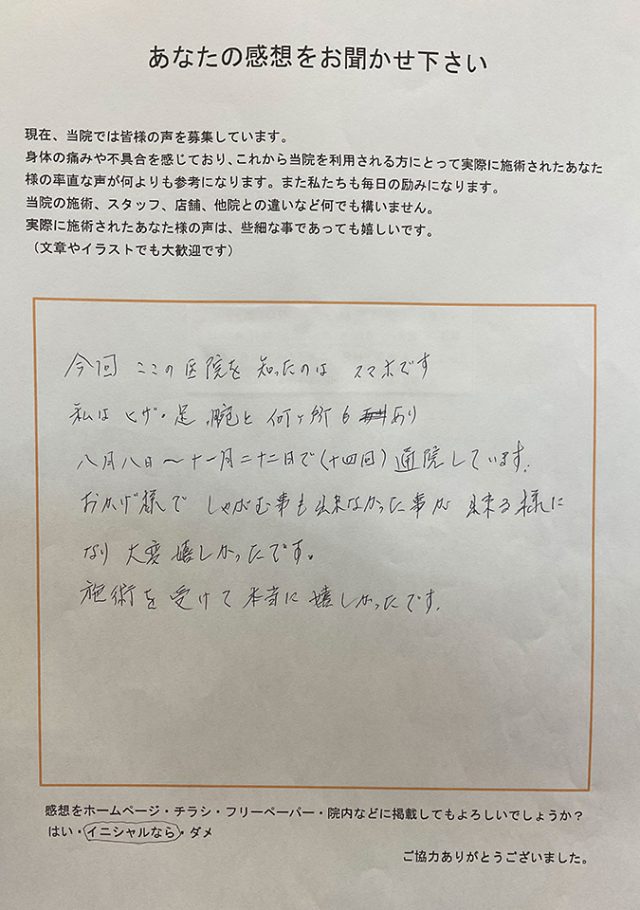 あなたの感想をお聞かせ下さい
現在、当院では皆様の声を募集しています。
身体の痛みや不具合を感じており、これから当院を利用される方にとって実際に施術されたあなた
様の率直な声が何よりも参考になります。また私たちも毎日の励みになります。
当院の施術、スタッフ、店舗、他院との違いなど何でも構いません。
実際に施術されたあなた様の声は、些細な事であっても嬉しいです。
（文章やイラストでも大歓迎です）
今回 ここの医院を 知ったのは スマホです
私は ヒザ・足、腕と 何ヶ所も あり
八月八日～十一月二十二日で(十四回)通院しています。
おかげ様で しゃがむ事も出来なかった事が 出来る様に
なり 大変 嬉しかったです。
施術を 受けて 本当に 嬉しかったです。
感想をホームページ・チラシ・フリーペーパー・院内などに掲載してもよろしいでしょうか？
はい・イニシャルなら・ダメ
ご協力ありがとうございました。